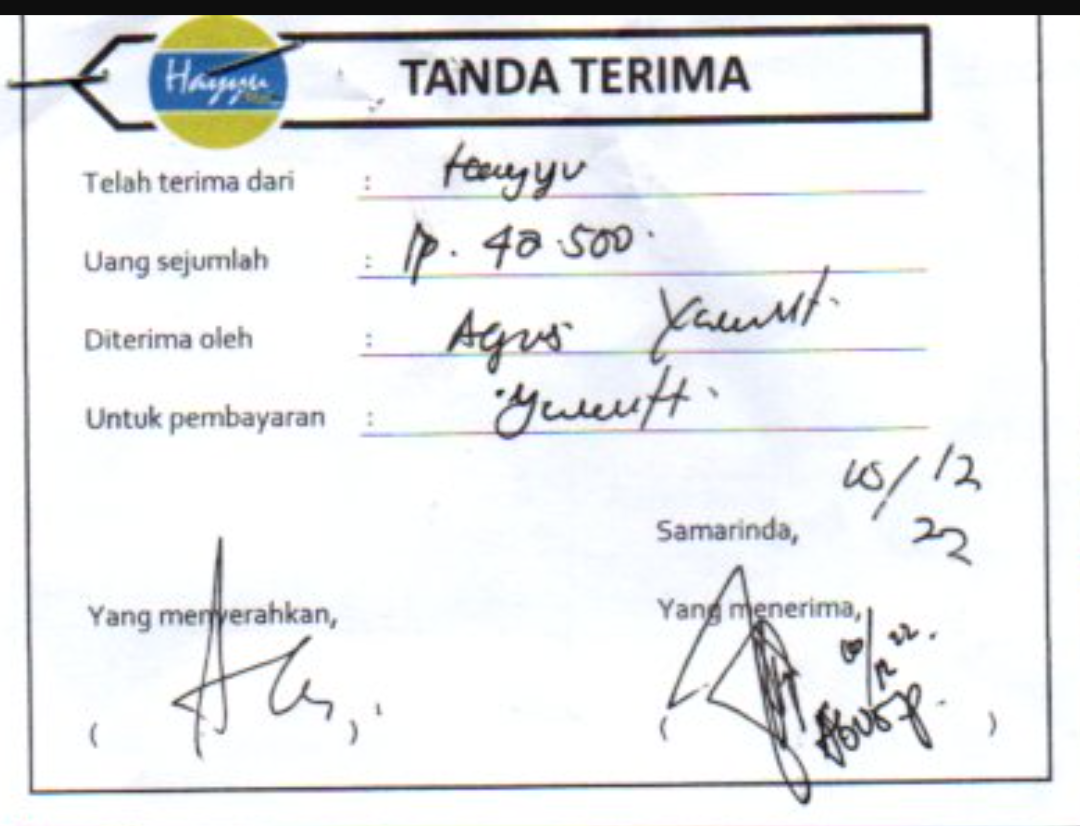 Hayyu
TANDA TERIMA
Telah terima dari : Hayyu
Uang sejumlah : Rp. 40.500.
Diterima oleh : Agus
Untuk pembayaran :
/12
22
Samarinda,
Yang menyerahkan, Yang menerima,
/12 22.
( ) ( )